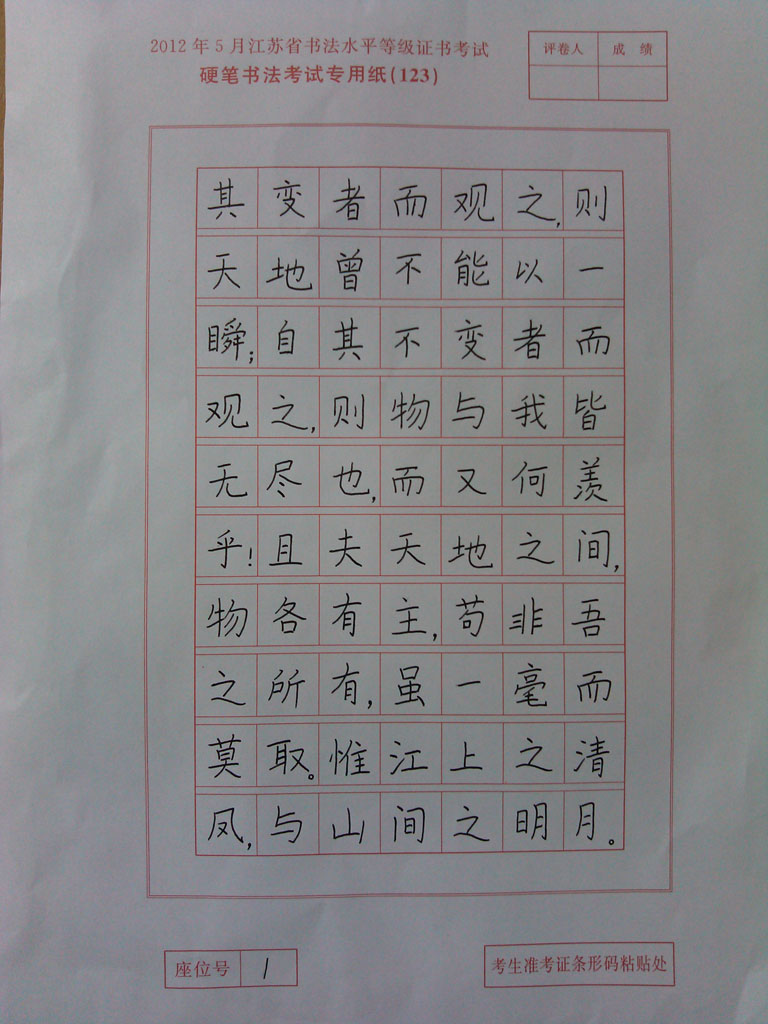 2012年5月江苏省书法水平等级证书考试
硬笔书法考试专用纸(123)
评卷人 成绩
其变者而观之,则
天地曾不能以一
瞬;自其不变者而
观之,则物与我皆
无尽也,而又何羡
乎!且夫天地之间,
物各有主,苟非吾
之所有,虽一毫而
莫取。惟江上之清
风,与山间之明月。
座位号 1
考生准考证条形码粘贴处